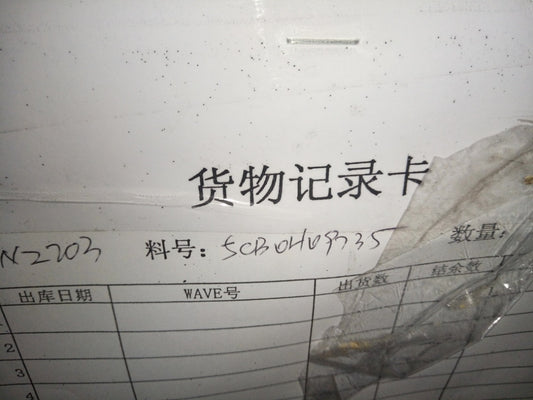 货物记录卡
N2203 料号: SCB0H09335 数量:
出库日期 WAVE号 出货数 结余数
1
2
3
4